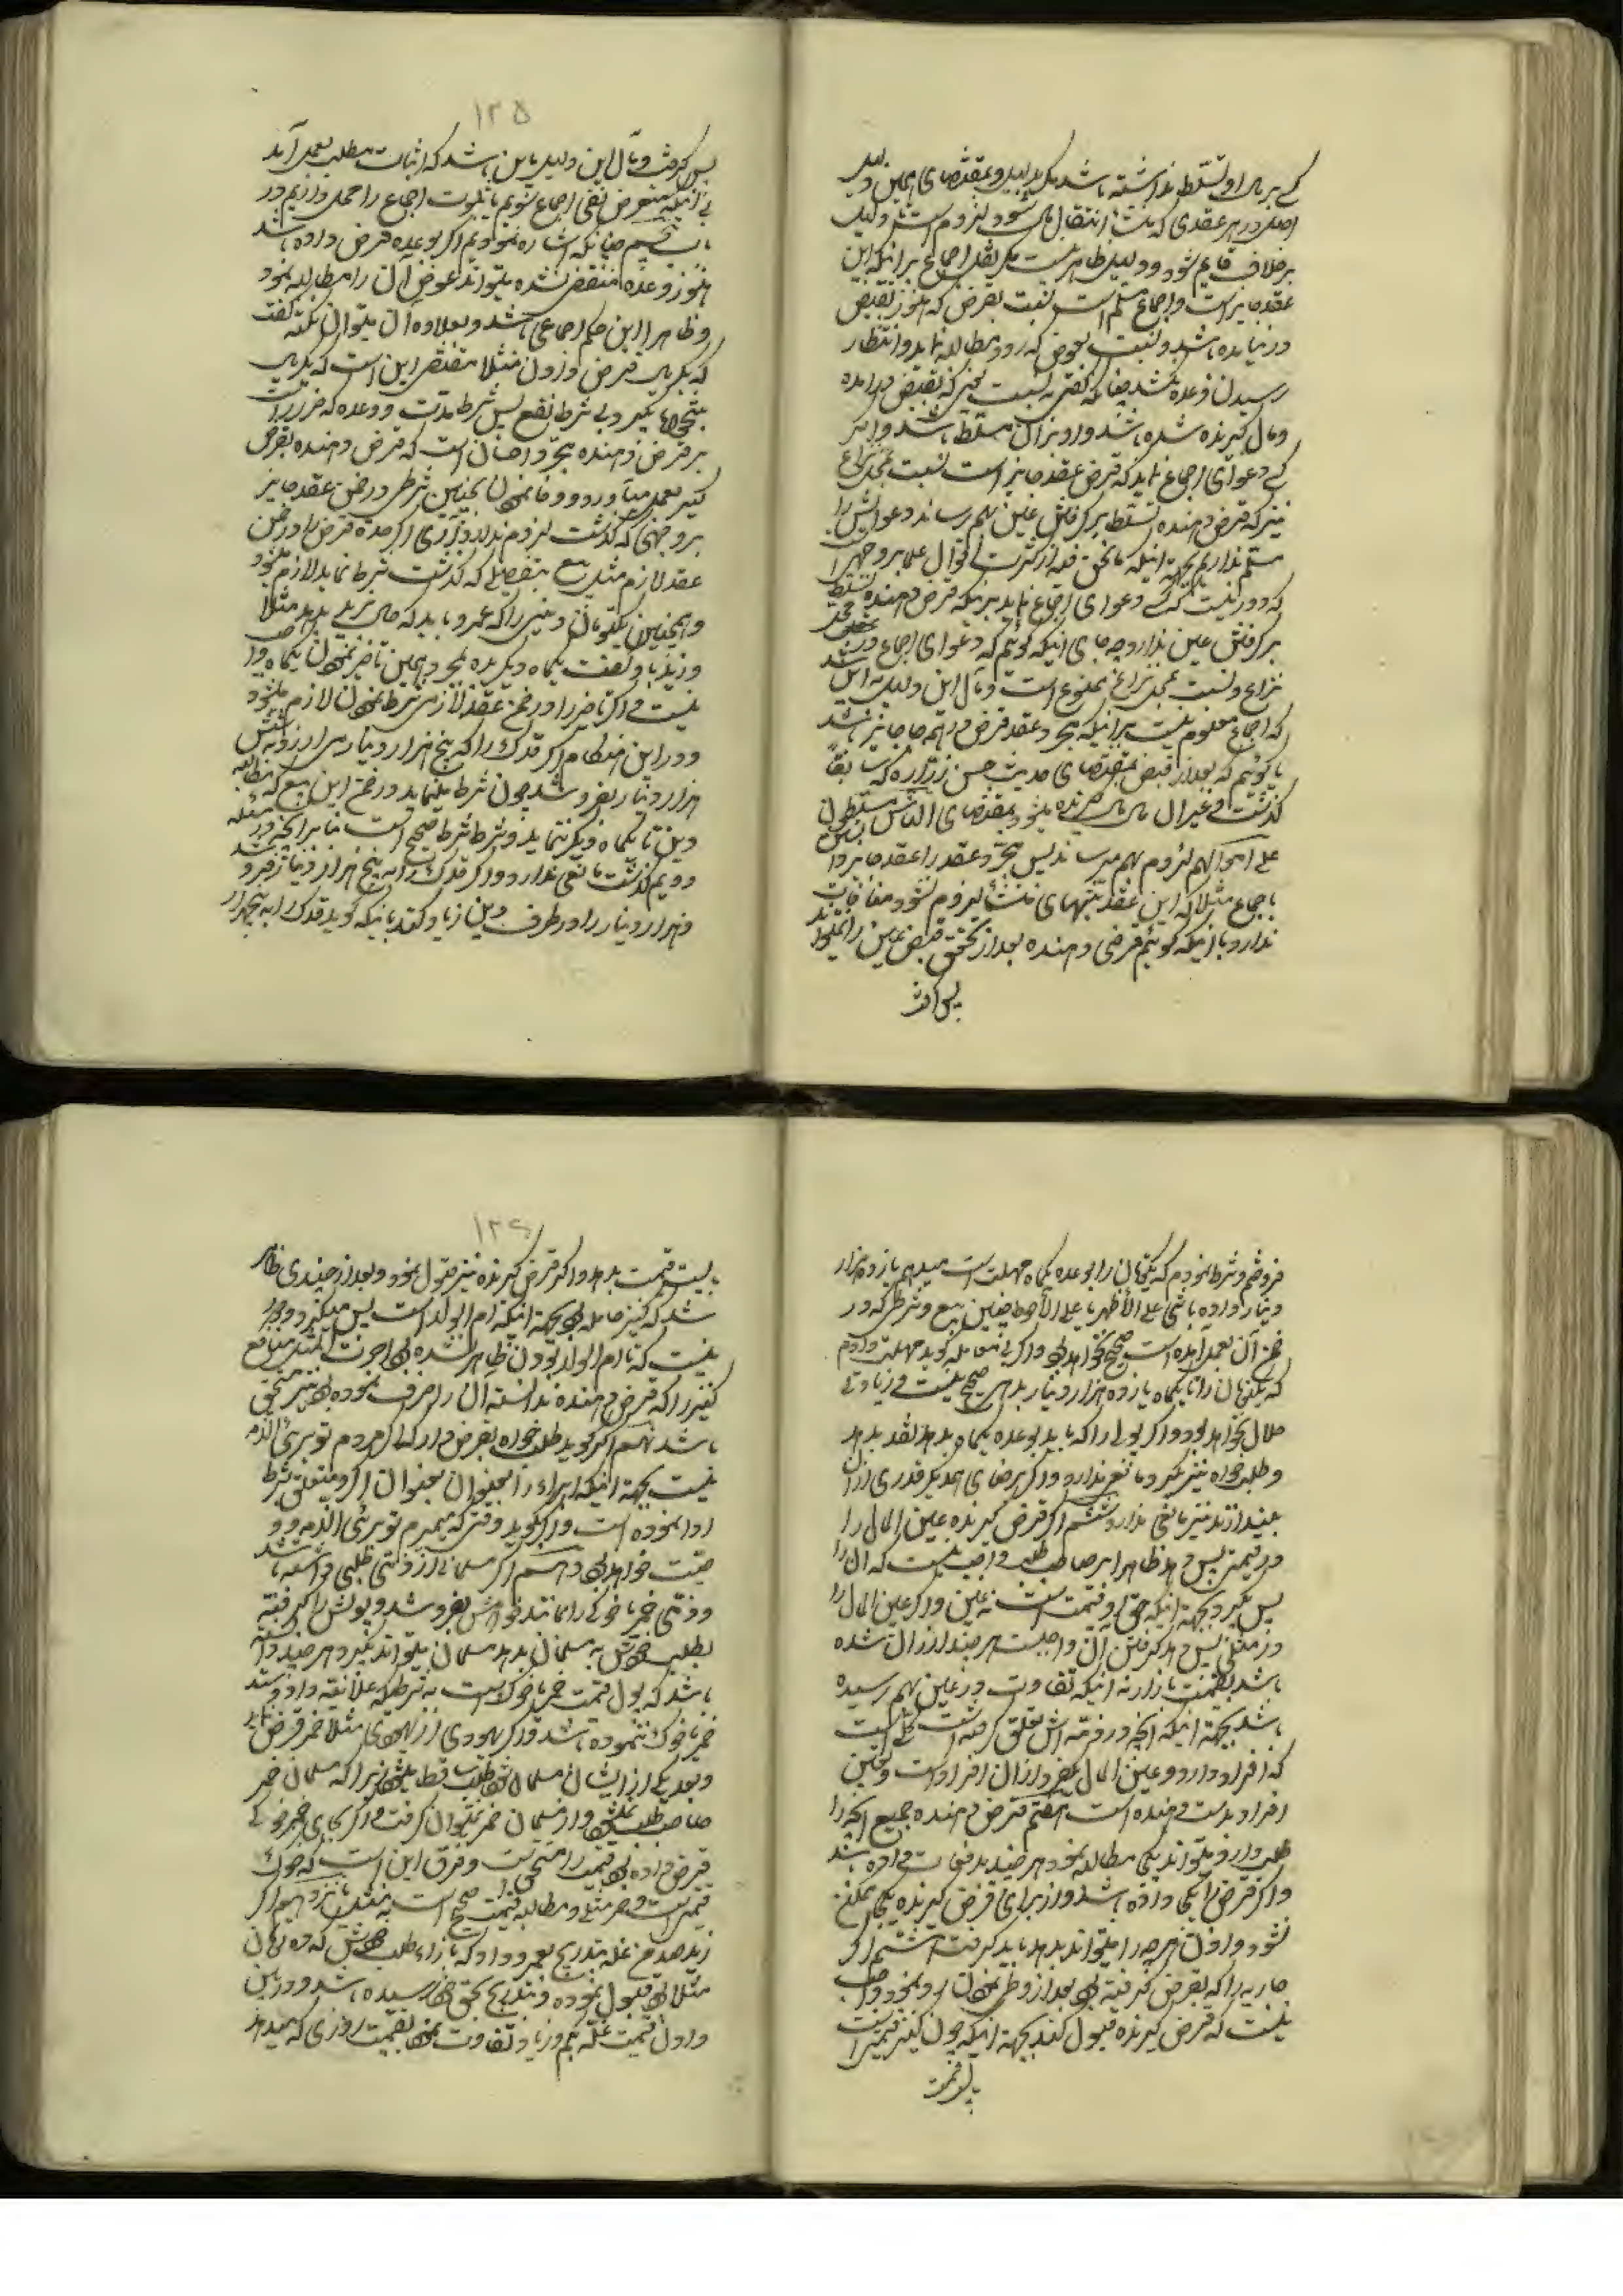 کسی بر مال او تسلط نداشته باشد مگر بدلیل و بمقتضای همین دلیل
اصل در هر عقدی که منشأ انتقال مال شود لزوم است تا دلیل
بر خلاف قایم شود و دلیل ظاهر نیست مگر نقل اجماع بر اینکه این
عقد جایز است و اجماع مسلم است نسبت بقرض که هنوز بقبض
در نیامده باشد و نسبت بعوض که زود مطالبه نماید و انتظار
رسیدن وعده نکشد چنانکه گفتیم نه نسبت بچیزی که بقبض درآمده
و مال گیرنده شده باشد و او بر آن مسلط باشد و اگر
کسی دعوای اجماع نماید که قرض عقد جایز است نسبت بمحل نزاع
نیز که قرض دهنده تسلط بر گرفتن عین بهم رساند دعوایش را
مسلم نداریم بجهة اینکه تحقق خلاف از کثرت اقوال علما بر وجهی است
که دور نیست کسی دعوای اجماع نماید بر اینکه قرض دهنده تسلط
بر گرفتن عین ندارد چه جای اینکه گوئیم که دعوای اجماع در محل
نزاع و نسبت بمحل نزاع ممنوع است و مآل این دلیل به این باشد
که اجماع معلوم نیست بر اینکه مجرد عقد قرض در همه جا جایز باشد
یا گوئیم که بعد از قبض بمقتضای حدیث حسن زراره که سابقاً
گذشت وغیر آن مال مال گیرنده میشود و بمقتضای الناس مسلطون
علی اموالهم لزوم بهم میرساند پس مجرد عقد را عقد جایز دانستن
باجماع مثلا که این عقد بتنهائی منشأ لزوم نشود منافات
ندارد با اینکه گوئیم قرض دهنده بعد از تحقق قبض عین را نمیتواند
پس گرفت
۱۲۵
پس گرفت و مآل این دلیل باین باشد که اثبات مطلب بعمل آید
بی آنکه متعرض نفی اجماع شویم یا ثبوت اجماع را مسلم داریم در
باب پنجم چنانکه اشاره نمودیم اگر بوعده قرض داده باشد
هنوز وعده منقضی نشده میتواند عوض آن را مطالبه نمود
و ظاهرا این حکم اجماعی باشد و بعلاوه آن میتوان گفت
که یکریال قرض دادن مثلا مقتضی این است که یکریال
بر قرض دهنده مجرد احسان است که قرض دهنده بقرض
گیر بعمل میآورد و وفا نمودن بچنین شرطی در ضمن عقد جایز
بر وجهی که گذشت لزوم ندارد آری اگر مدة قرض را در ضمن
عقد لازم مثل بیع بتفصیلی که گذشت شرط نماید لازم میشود
و همچنین یکتومان دینی را که عمرو باید که حال بزید بدهد مثلا
و زید باو گفت یکماه دیگر بده بمجرد همین تأخیر نمودن یکماه واجب
نیست و اگر تأخیر را در ضمن عقد لازمی شرط نمودن لازم میشود
و در این هنگام اگر قدک را که پنج هزار دینار می ارزد به شش
هزار دینار بفروشد چون شرط مینماید در ضمن این بیع که مطالبه
دین تا یکماه دیگر ننماید و شرط شرط صحیح است بنا بر آنچه در مسئله
دویم گذشت مانعی ندارد و اگر قدک را به پنج هزار دینار بفروشد
و هزار دینار را در طرف دین زیاد کند باینکه گوید قدک را به پنجهزار
فروختم و شرط نمودم که یکتومان را بوعده یکماه مهلت است میدهم یازده هزار
دینار داده باشی علی الأظهر یا علی الأحوط چنین بیع و شرطی که در
ضمن آن بعمل آمده است صحیح نخواهد بود و اگر بی معامله گوید مهلت دادم
که یکتومان را تا یکماه یازده هزار دینار بدهی صحیح نیست و زیادتی
حلال نخواهد بود و اگر پولی را که باید بوعده یکماه بدهد نقد بدهد
و طلبخواه نیز بگیرد مانعی ندارد و اگر برضای همدیگر قدری از آن
بیندازند نیز مانعی ندارد ششم اگر قرض گیرنده عین المال را
در قیمتی پس دهد ظاهرا بر صاحب طلب واجب نیست که آن را
پس بگیرد بجهة اینکه حق او قیمت است نه عین و اگر عین المال را
در مثلی پس دهد گرفتن آن واجبست هر چند ارزان شده
باشد بقیمت بازار نه اینکه تفاوت در عین بهم رسیده
باشد بجهة اینکه آنچه در ذمه اش تعلق گرفته است کلی است
که افراد دارد و عین المال یکفرد از آن افراد است و تعیین
افراد بدست دهنده است هفتم قرض دهنده جمیع آنچه را
طلب دارد میتواند یکجا مطالبه نمود هر چند بدفعات داده باشد
و اگر قرض یکجا داده باشد و از برای قرض گیرنده یکجا ممکن
نشود دادن هر چه را میتواند بدهد باید گرفت هشتم اگر
جاریه را که بقرض گرفته بود بعد از وطی نمودن رد نمود واجب
نیست که قرض گیرنده قبول کند بجهة اینکه چون کنیز قیمتی است
بایست قیمت
۱۲۶
بایست قیمت بدهد و اگر قرض گیرنده نیز قبول نمود و بعد از چندی ظاهر
شد که کنیز حامله بود بجهة اینکه ام الولد است پس میگیرد و دور
نیست که تا ام الولد بودن ظاهر نشده بود اجرت المثل منافع
کنیز را که قرض دهنده ندانسته آن را صرف نموده بود نیز مستحق
باشد نهم اگر گوید طلبخواه بقرض دار که اگر مردم تو بری الذمه
نیست بجهة اینکه ابراء را بعنوان بعنوان اگر و متعلق بشرط
ادا نموده است و اگر بگوید وقتی که بمیرم تو بری الذمه و
وصیت خواهد بود دهم اگر مسلمانی از ذمّی طلبی داشته باشد
و ذمّی خمر یا خوکی را بمانند خودش بفروشد و پولش را گرفته
بطلب خودش به مسلمان بدهد مسلمان میتواند بگیرد هر چند دانسته
باشد که پول قیمت خمر یا خوک است به شرطی که علانیة داد و ستد
خمر یا خوک ننموده باشد و اگر یهودی از یهودی مثلا خمر قرض نماید
و بعد یکی از ایشان مسلمان شود طلب ساقط میشود زیرا که مسلمان خمر
صاحب طلب نمیشود و از مسلمان خمر نمیتوان گرفت و اگر بجای خمر خوکی
قرض داده بود قیمت را مستحق است و فرق این است که خوک
قیمی است و خمر مثلی و مطالبه قیمت صحیح است نه مثل یازدهم اگر
زید صد من غله بتدریج بعمرو داد که بازاء طلب خودش که ده تومان
مثلا بود قبول نموده و بتدریج بحق خود رسیده باشد و در بین
دادن قیمت غله بکم و زیاد تفاوت نمود بقیمت روزی که میدهد